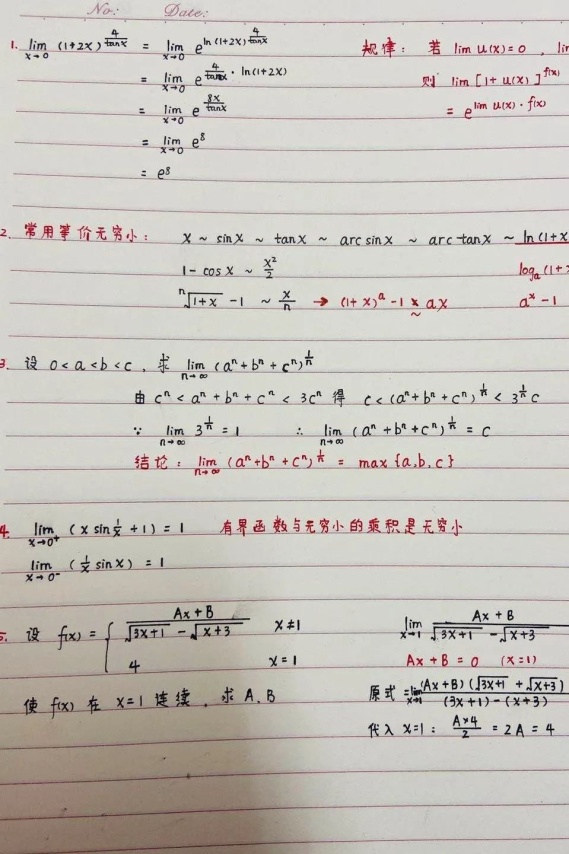 No: Date:
1. lim x→0 (1+2x)^(4/tanx) = lim x→0 e^(ln(1+2x)^(4/tanx)) 规律: 若 lim u(x)=0 ,
= lim x→0 e^(4/tanx · ln(1+2x)) 则 lim [1+u(x)]^f(x)
= lim x→0 e^(8x/tanx) = e^(lim u(x)·f(x))
= lim x→0 e^8
= e^8
2. 常用等价无穷小: x ~ sinx ~ tanx ~ arcsinx ~ arctanx ~ ln(1+x
1-cosx ~ x²/2 log_a(1+
ⁿ√(1+x) -1 ~ x/n → (1+x)^a -1 ~ ax a^x -1
3. 设 0<a<b<c , 求 lim n→∞ (a^n+b^n+c^n)^(1/n)
由 c^n < a^n+b^n+c^n < 3c^n 得 c<(a^n+b^n+c^n)^(1/n) < 3^(1/n) c
∵ lim n→∞ 3^(1/n) = 1 ∴ lim n→∞ (a^n+b^n+c^n)^(1/n) = c
结论: lim n→∞ (a^n+b^n+c^n)^(1/n) = max{a,b,c}
4. lim x→0⁺ (x sin 1/x +1) = 1 有界函数与无穷小的乘积是无穷小
lim x→0⁻ (1/x sinx) = 1
5. 设 f(x) = { (Ax+B)/(√(3x+1) - √(x+3)) x≠1 lim x→1 (Ax+B)/(√(3x+1) - √(x+3))
4 x=1 Ax+B=0 (x=1)
使 f(x) 在 x=1 连续 , 求 A、B 原式 = lim x→1 (Ax+B)(√(3x+1) + √(x+3))/((3x+1)-(x+3))
代入 x=1: A×4/2 = 2A = 4